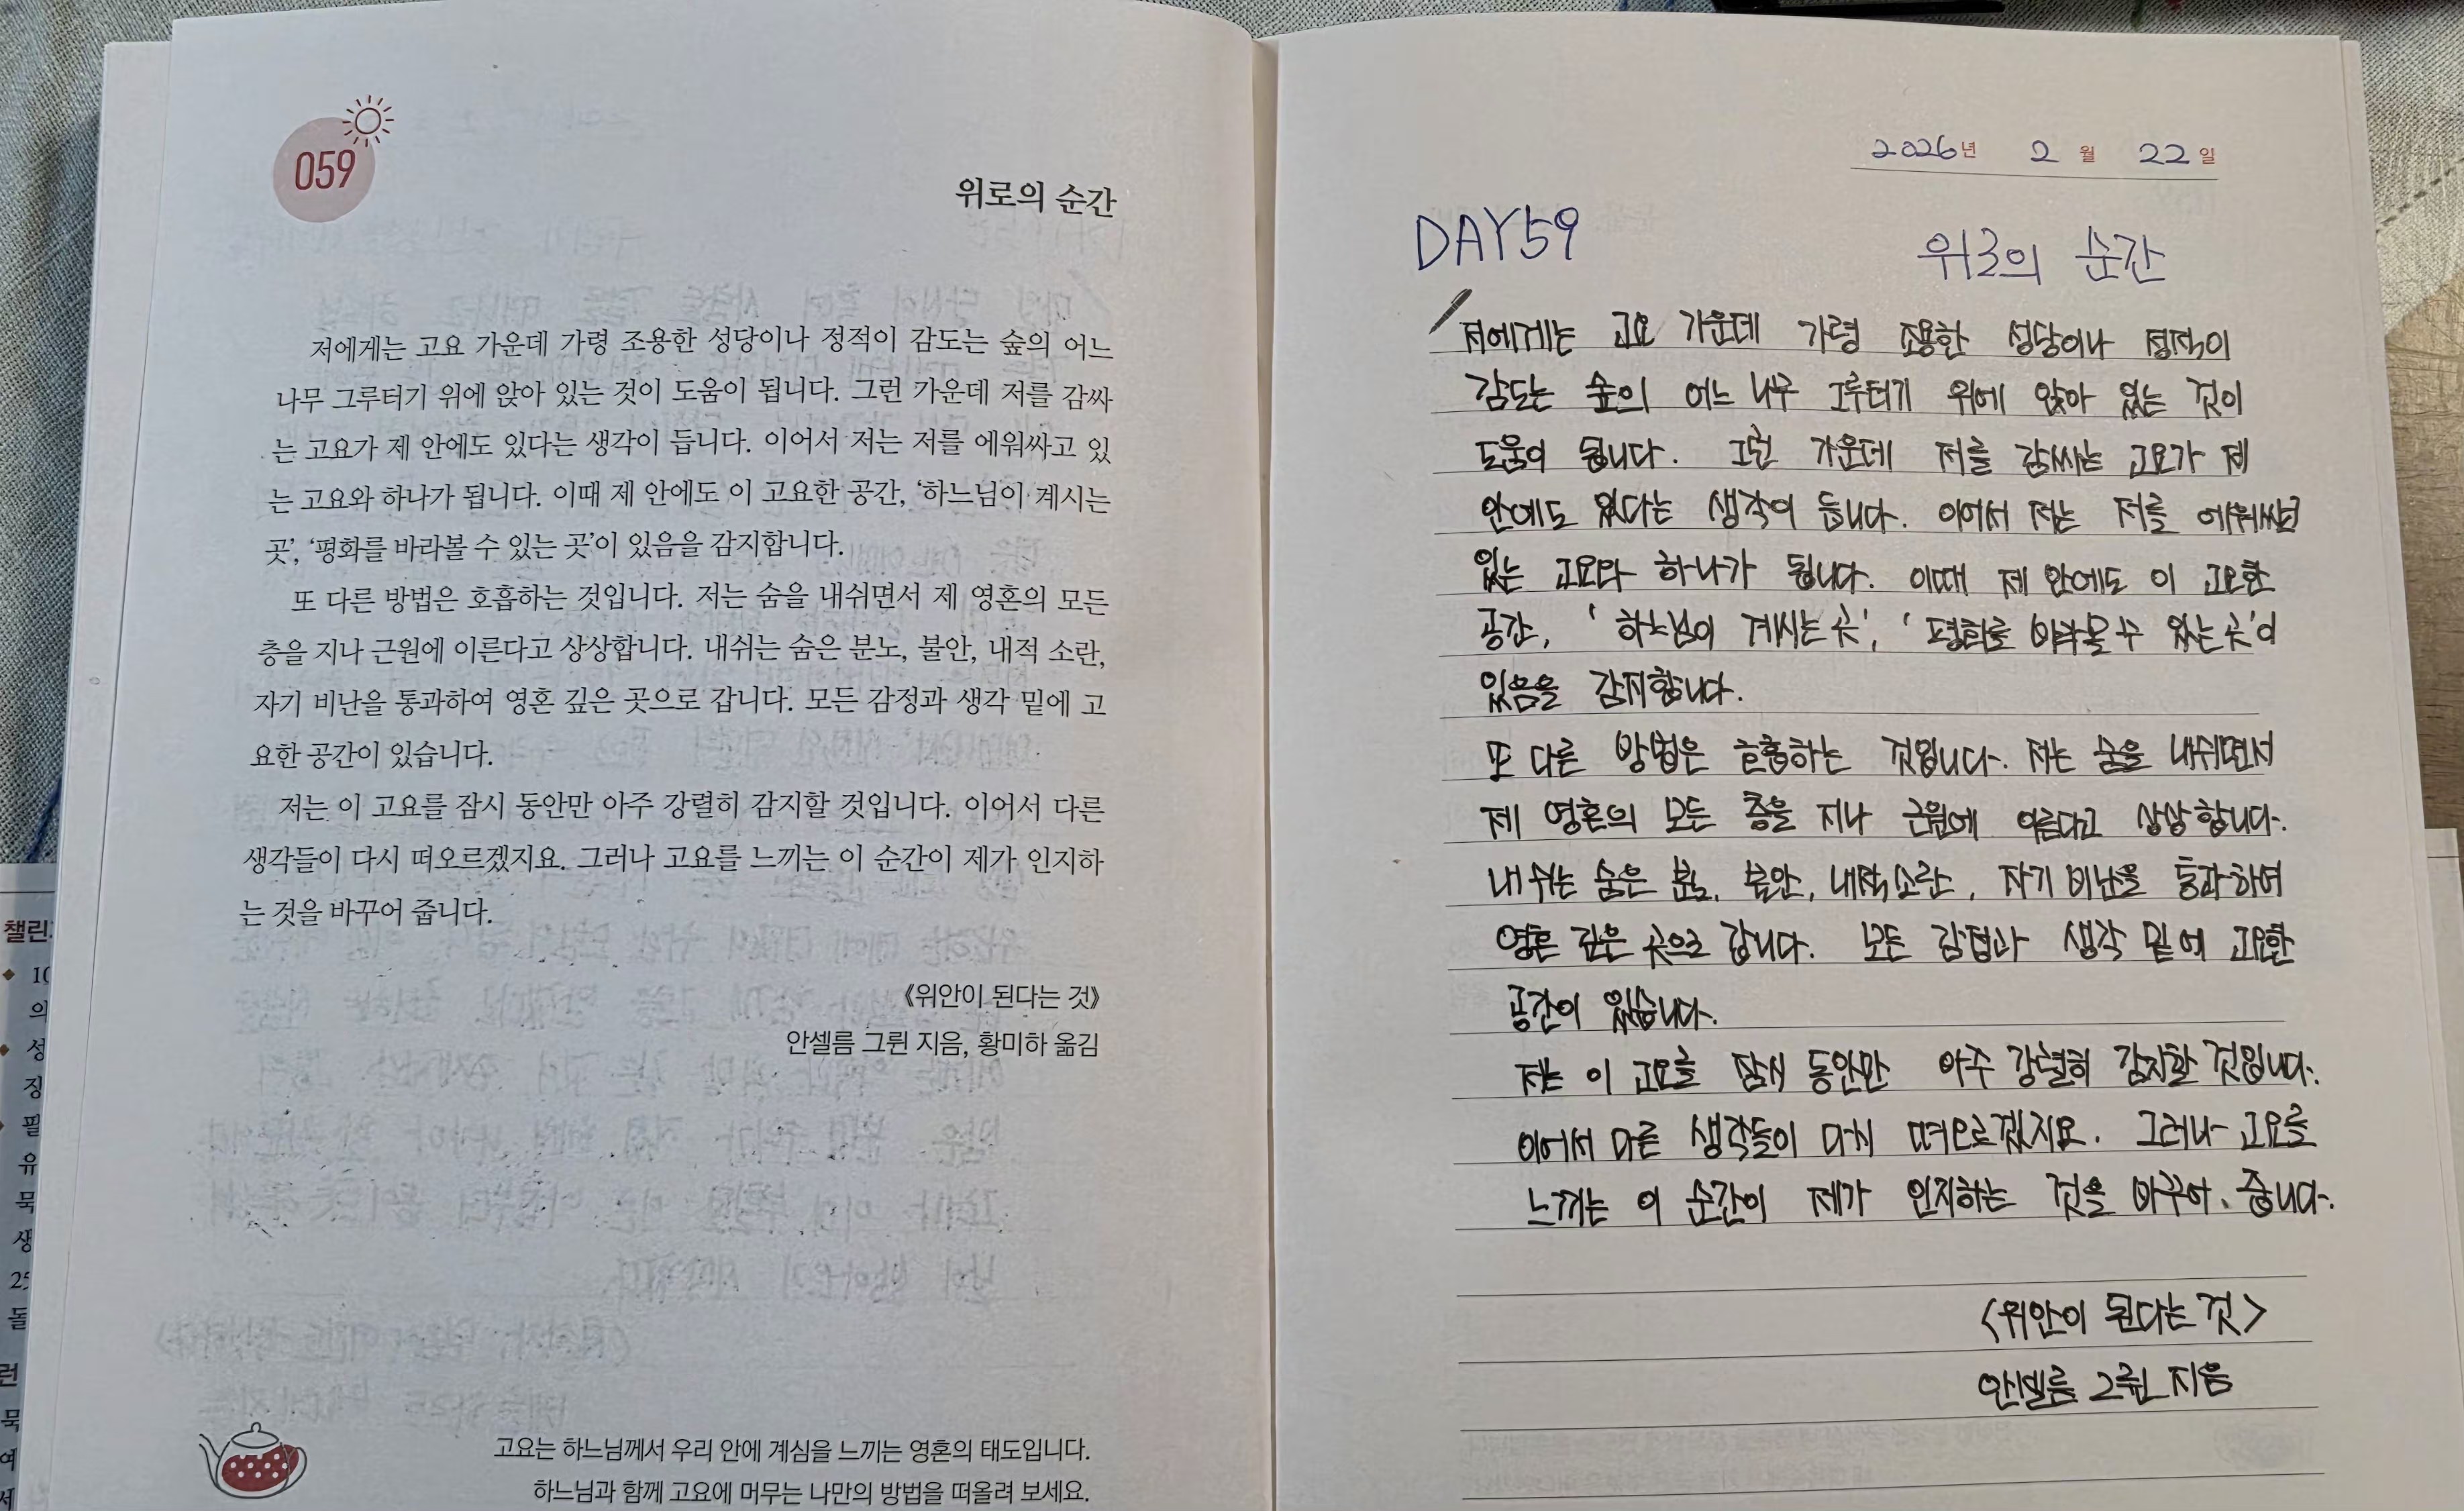 059
위로의 순간
저에게는 고요 가운데 가령 조용한 성당이나 정적이 감도는 숲의 어느
나무 그루터기 위에 앉아 있는 것이 도움이 됩니다. 그런 가운데 저를 감싸
는 고요가 제 안에도 있다는 생각이 듭니다. 이어서 저는 저를 에워싸고 있
는 고요와 하나가 됩니다. 이때 제 안에도 이 고요한 공간, ‘하느님이 계시는
곳’, ‘평화를 바라볼 수 있는 곳’이 있음을 감지합니다.
또 다른 방법은 호흡하는 것입니다. 저는 숨을 내쉬면서 제 영혼의 모든
층을 지나 근원에 이른다고 상상합니다. 내쉬는 숨은 분노, 불안, 내적 소란,
자기 비난을 통과하여 영혼 깊은 곳으로 갑니다. 모든 감정과 생각 밑에 고
요한 공간이 있습니다.
저는 이 고요를 잠시 동안만 아주 강렬히 감지할 것입니다. 이어서 다른
생각들이 다시 떠오르겠지요. 그러나 고요를 느끼는 이 순간이 제가 인지하
는 것을 바꾸어 줍니다.
《위안이 된다는 것》
안셀름 그륀 지음, 황미하 옮김
고요는 하느님께서 우리 안에 계심을 느끼는 영혼의 태도입니다.
하느님과 함께 고요에 머무는 나만의 방법을 떠올려 보세요.
챌린
10
의
성
징
필
유
묵
생
25
돌
런
묵
여
세
2026년 2월 22일
DAY59
위로의 순간
저에게는 고요 가운데 가령 조용한 성당이나 정적이
감도는 숲의 어느 나무 그루터기 위에 앉아 있는 것이
도움이 됩니다. 그런 가운데 저를 감싸는 고요가 제
안에도 있다는 생각이 듭니다. 이어서 저는 저를 에워싸고
있는 고요와 하나가 됩니다. 이때 제 안에도 이 고요한
공간, ‘하느님이 계시는 곳’, ‘평화를 바라볼 수 있는 곳’이
있음을 감지합니다.
또 다른 방법은 호흡하는 것입니다. 저는 숨을 내쉬면서
제 영혼의 모든 층을 지나 근원에 이른다고 상상합니다.
내쉬는 숨은 분노, 불안, 내적 소란, 자기 비난을 통과하여
영혼 깊은 곳으로 갑니다. 모든 감정과 생각 밑에 고요한
공간이 있습니다.
저는 이 고요를 잠시 동안만 아주 강렬히 감지할 것입니다.
이어서 다른 생각들이 다시 떠오르겠지요. 그러나 고요를
느끼는 이 순간이 제가 인지하는 것을 바꾸어 줍니다.
<위안이 된다는 것>
안셀름 그륀 지음